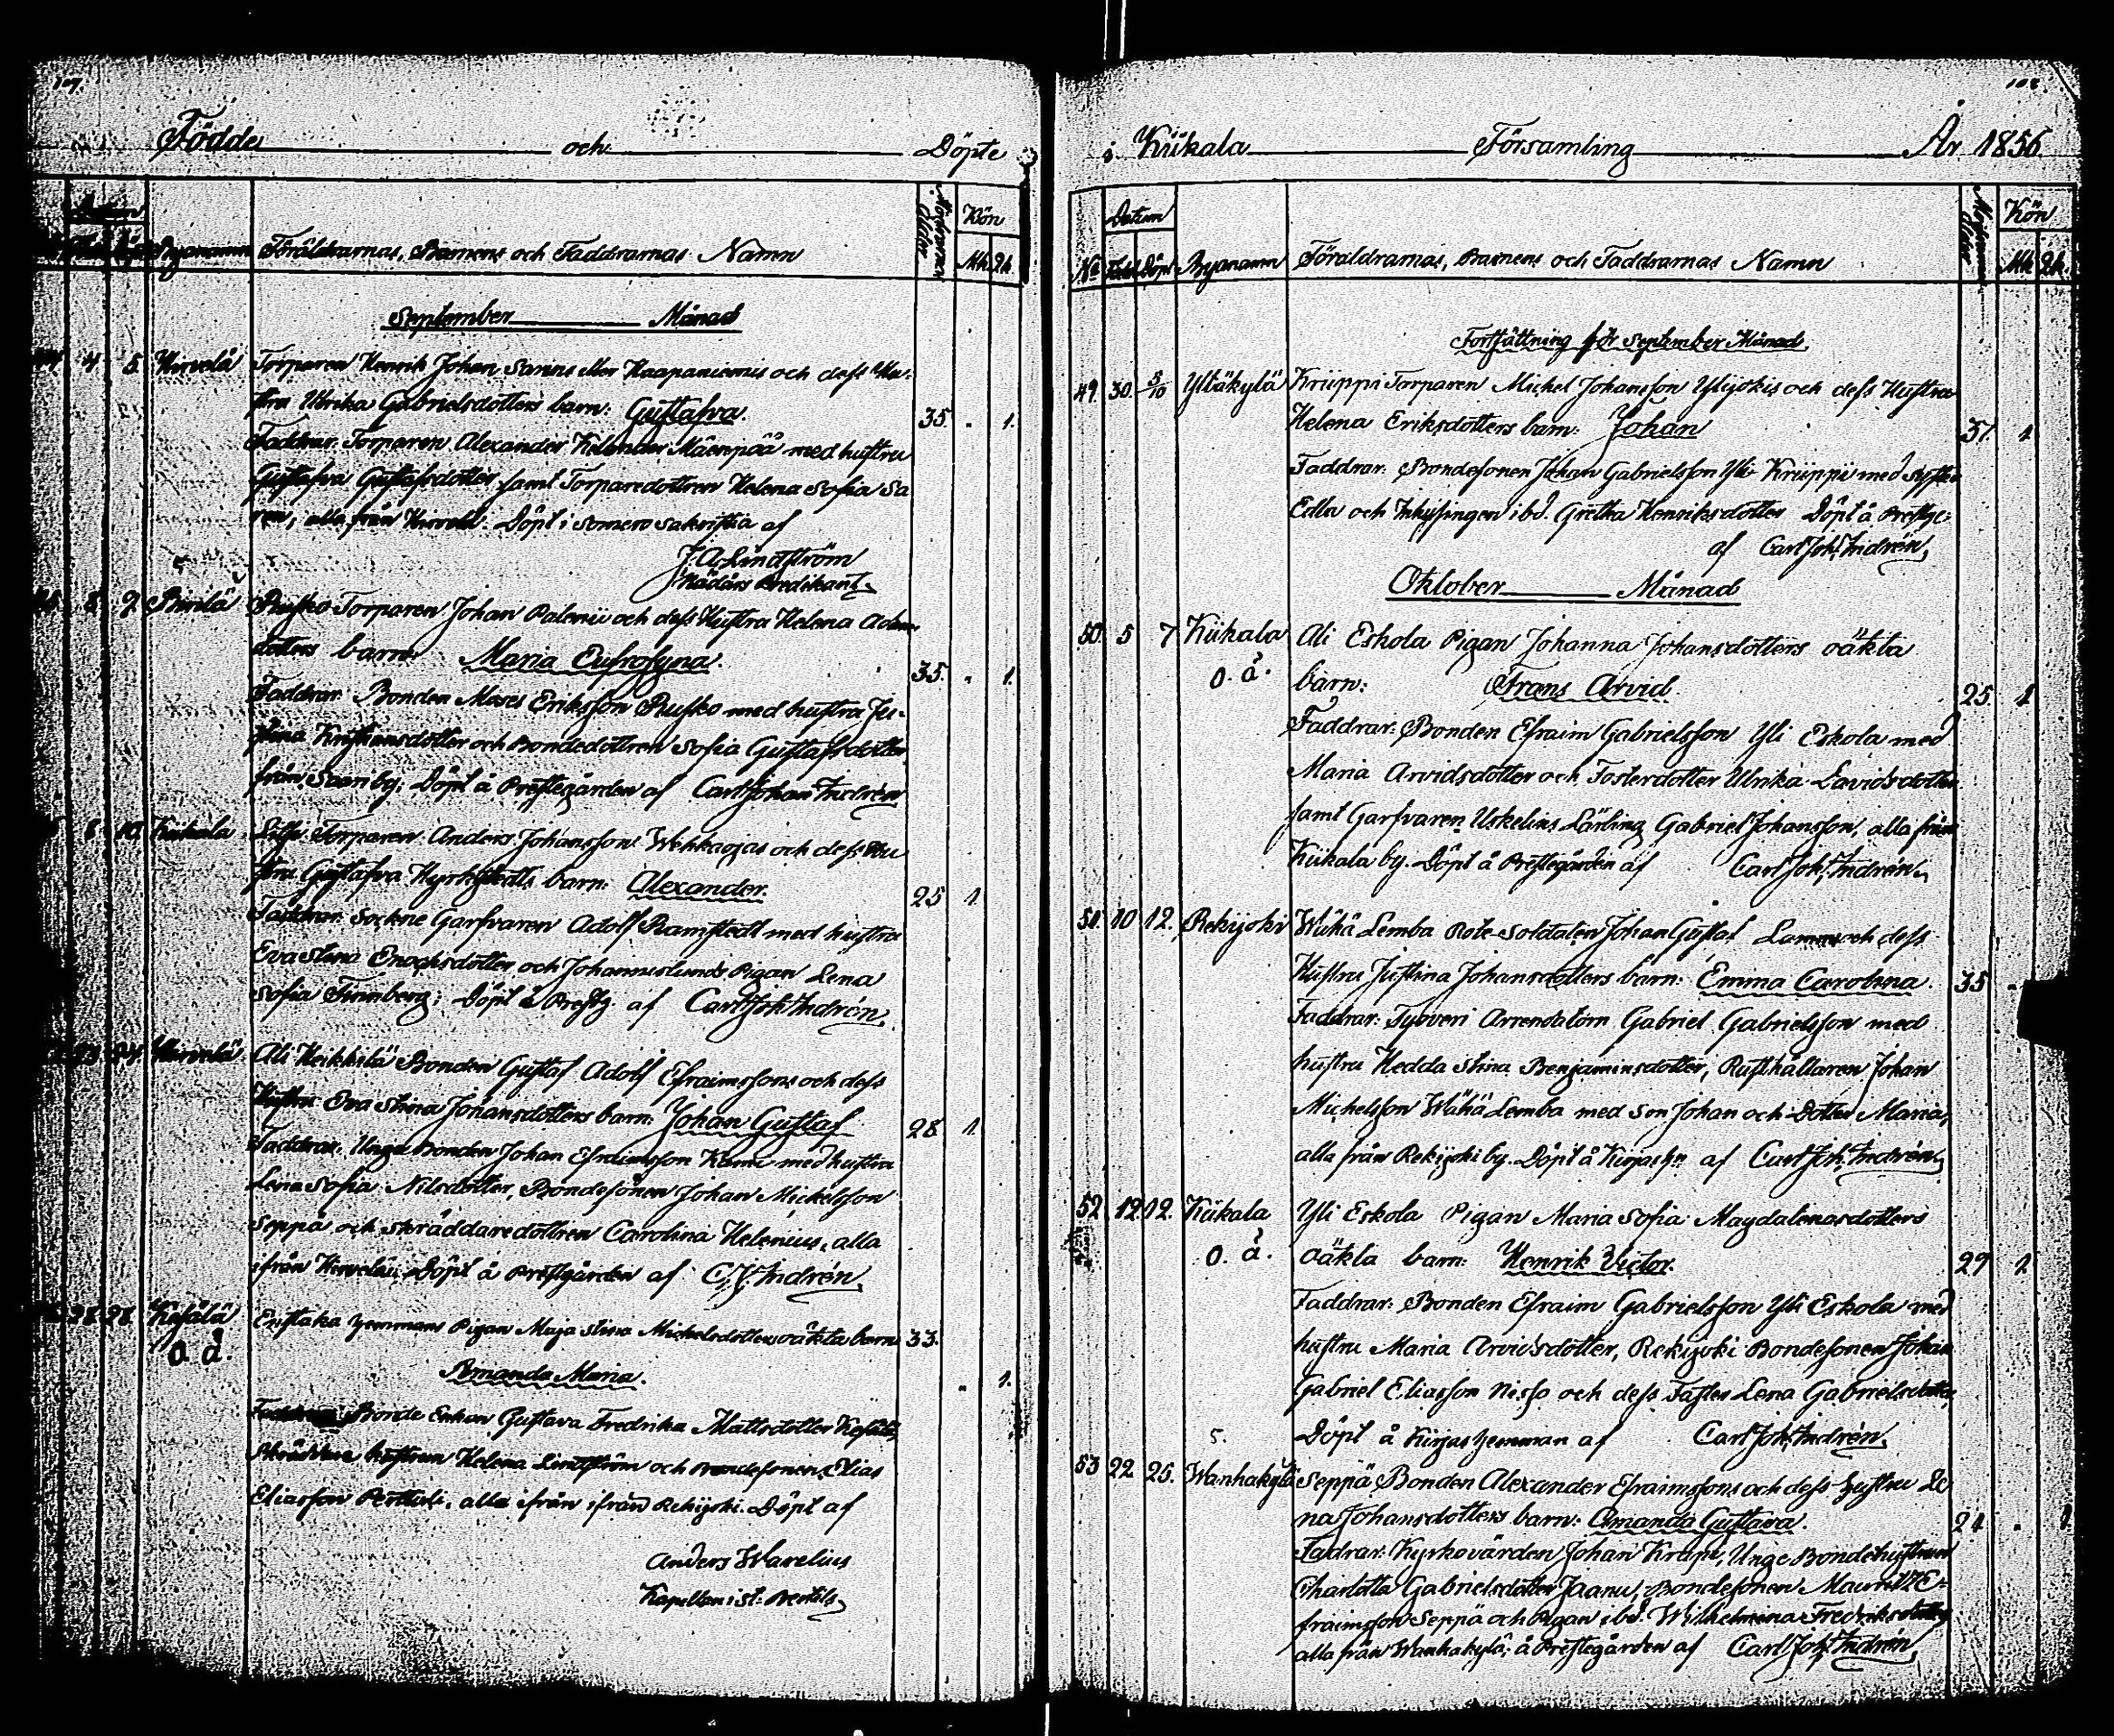 107.
Födde och Döpte
Föräldrarnas, Barnens och Faddrarnas Namn
Moderns Ålder
Kön
Mk. Qk.
September Månad
4. 5. Hirvelä Torparen Henrik Johan Sarins eller Haapaniemis och dess Hu-
stru Ulrika Gabrielsdotters barn: Gustafva. 35. " 1.
Faddrar: Torparen Alexander Kelander Mäenpää med hustru
Gustafva Gustafsdotter samt Torparedottren Helena Sofia Sa
ren, alla från Hirvelä. Döpt i Somero sakristia af
J. A. Lindström
Nådårs Predikant.
7. Pirilä Rusko Torparen Johan Palenii och dess Hustru Helena Adams
dotters barn: Maria Eufrosyna. 35. " 1.
Faddrar: Bonden Moses Eriksson Rusko med hustru Ju-
stina Kristiansdotter och Bondedottren Sofia Gustafsdotter
från Saari by; Döpt å Prestegården af Carl Johan Indrén
8. 10. Kiikala Torparen Anders Johansson Wehkaojas och dess Hu
stru Gustafva Hyrkstedts barn: Alexander. 25 1.
Faddrar: Sockne Garfvaren Adolf Ramstedt med hustru
Eva Stina Enochsdotter och Johannislunds Pigan Lena
Sofia Timberg; Döpt å Prestg. af Carl Joh: Indrén
23. 24. Hirvelä Ali Heikkilä Bonden Gustaf Adolf Efraimssons och dess
Hustru Eva Stina Johansdotters barn: Johan Gustaf 28. 1.
Faddrar: Unga Bonden Johan Efraimsson med hustru
Lena Sofia Nilsdotter, Bondesonen Johan Mickelsson
Seppä och skräddaredottren Carolina Helenius, alla
ifrån Hirvelä; Döpt å Prestgården af C. J. Indrén
28. 28. o. ä. Enstaka hemmans Pigan Maja Stina Michelsdotters oäkta barn 33.
Amanda Maria. " 1.
Faddrar: Borde Enkan Gustava Fredrika Mattsdotter
Skräddare hustrun Helena Lindström och Bondesonen Elias
Eliasson Perttuli, alla ifrån ifrån Rekijoki. Döpt af
Anders Warelius
Kapellan i St. Bertils
108.
i Kiikala Församling År 1856.
Datum
Kön
No Född Döpt Byanamn Föräldrarnas, Barnens och Faddrarnas Namn Moderns Ålder Mk Qk.
Fortsättning för September Månad
49. 30. 5/10 Yltäkylä Kruppi Torparen Michel Johansson Ylijokis och dess Hustru
Helena Eriksdotters barn: Johan 37. 1
Faddrar: Bondesonen Johan Gabrielsson Yli Kruppi med syster
Edla och Inhysingen ibd. Gretha Henriksdotter Döpt å Prestg:
af Carl Joh: Indrén,
Oktober Månad
50. 5 7 Kiikala Ali Eskola Pigan Johanna Johansdotters oäkta
o. ä. barn: Frans Arvid. 25. 1
Faddrar: Bonden Efraim Gabrielsson Yli Eskola med
Maria Arvidsdotter och Fosterdotter Ulrika Davidsdotter
samt Garfvaren Uskelins Lärling Gabriel Johansson, alla från
Kiikala by. Döpt å Prestegården af Carl Joh: Indrén
51. 10 12. Rekijoki Wähä Lemba Rote-Soldaten Johan Gustaf Lamm och dess
Hustru Justina Johansdotters barn: Emma Carolina. 35
Faddrar: Tyyveri Arrendatorn Gabriel Gabrielsson med
hustru Hedda Stina Benjaminsdotter, Rusthållaren Johan
Michelsson Wähä Lemba med Son Johan och Dotter Maria,
alla från Rekijoki by. Döpt å Kirjas hn af Carl Joh. Indrén
52 12 12. Kiikala Yli Eskola Pigan Maria Sofia Magdalenasdotters
o. ä. oäkta barn: Henrik Victor. 29 1
Faddrar: Bonden Efraim Gabrielsson Yli Eskola med
hustru Maria Arvidsdotter, Rekijoki Bondesonen Johan
Gabriel Eliasson Nisso och dess Faster Lena Gabrielsdotter,
Döpt å Kirjas hemman af Carl Joh. Indrén
53 22 25. Wanhakylä Seppä Bonden Alexander Efraimssons och dess hustru Le
na Johansdotters barn: Amanda Gustava. 24 " 1
Faddrar: Kyrkovärden Johan Krapi, Unge Bondehustrun
Charlotta Gabrielsdotter Jaanu, Bondesonen Mauritz E-
fraimsson Seppä och Pigan ibd. Wilhelmina Fredriksdotter
alla från Wanhakylä; å Prestegården af Carl Joh: Indrén